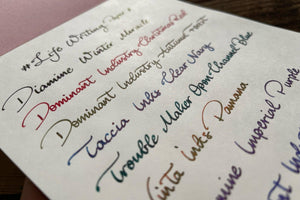 #Life Writing Paper
Diamine Winter Miracle
Dominant Industry Christmas Red
Dominant Industry Autumn
Taccia Inks Clear Navy
Trouble Maker Open Channel Blue
Vinta Inks Pamana
Diamine Imperial Purple